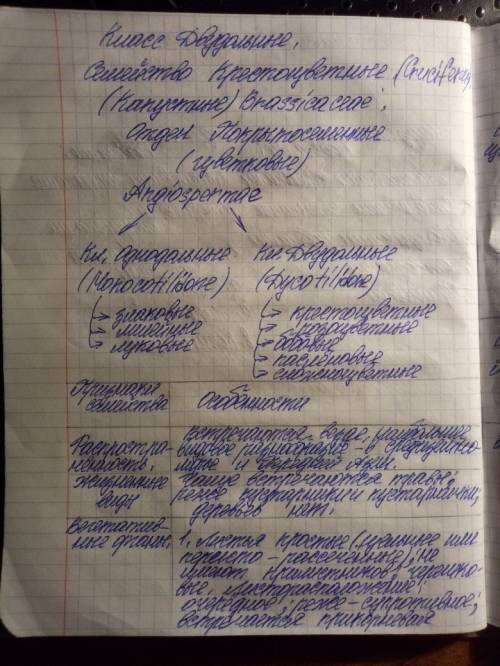 Класс Двудольные,
Семейство Крестоцветные (Cruciferae)
(Капустные) Brassicaceae;
Отдел Покрытосеменные
(цветковые)
Angiospermae
Кл. Однодольные
(Monocotildone)
злаковые
лилейные
луковые
Кл Двудольные
(Dycotildone)
крестоцветные
розоцветные
бобовые
паслёновые
сложноцветные
Признаки семейства
Особенности
Распростра-
нённость.
встречаются везде, наибольшее
видовое разнообразие - в средиземно-
морье и Передней Азии.
Жизненные
виды
Чаще встречаются травы;
реже кустарники и кустарнички;
деревьев нет.
Вегетатив-
ные органы.
1. Листья простые (цельные или
перисто-рассечённые); не
имеют прилистников; черешко-
вые, листорасположение:
очередное; реже - супротивное;
встречается прикорневая